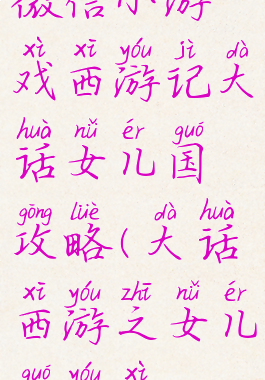 微信小游
xì xī yóu jì dà
戏西游记大
huà nǚ ér guó
话女儿国
gōng lüè dà huà
攻略(大话
xī yóu zhī nǚ ér
西游之女儿
guó yóu xì